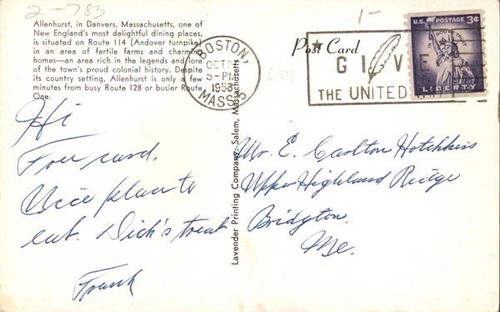 2-783
1-
Allenhurst, in Danvers, Massachusetts, one of
New England's most delightful dining places,
is situated on Route 114 (Andover turnpike)
in an area of fertile farms and charming
homes—an area rich in the legends and lore
of the town's proud colonial history. Despite
its country setting, Allenhurst is only a few
minutes from busy Route 128 or busier Route
One.
BOSTON,
OCT
5-PM
1958
MASS.
Post Card
GIVE
THE UNITED WAY
U.S. POSTAGE 3¢
LIBERTY
Hi
Free card.
Nice place to
eat. Dick's treat
Frank
Lavender Printing Company, Salem, Massachusetts
Mr. E. Carlton Hotchkiss
Upper Highland Ridge
Bridgton,
Me.